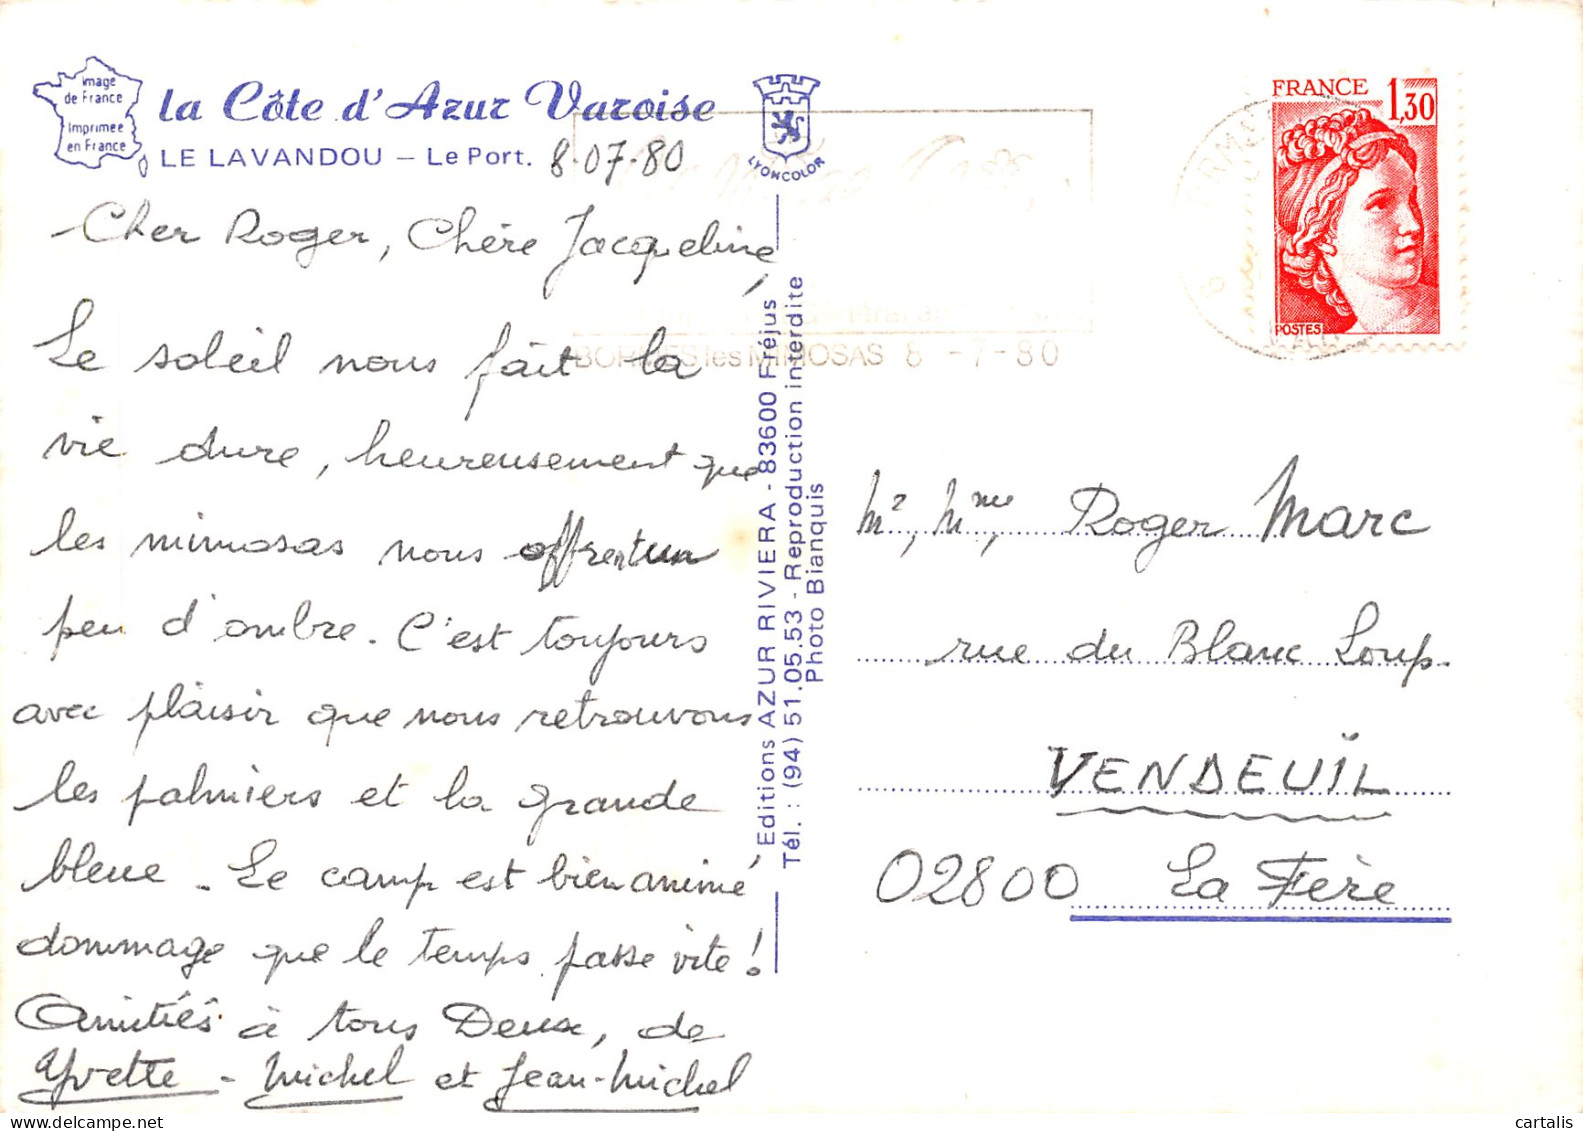 Image
de France
Imprimée
en France
la Côte d'Azur Varoise
LE LAVANDOU – Le Port.
8-07-80
LYONCOLOR
Cher Roger, Chère Jacqueline,
Le soleil nous fait la
vie dure, heureusement que
les mimosas nous offrent un
peu d'ombre. C'est toujours
avec plaisir que nous retrouvons
les palmiers et la grande
bleue. Le camp est bien animé
dommage que le temps passe vite !
Amitiés à tous Deux, de
Yvette - Michel et Jean-Michel
Editions AZUR RIVIERA - 83600 Fréjus
Tél. : (94) 51.05.53 - Reproduction interdite
Photo Bianquis
BORMES les MIMOSAS 8 -7-80
FRANCE
1,30
POSTES
Mr, Mme, Roger Marc
rue du Blanc Loup.
VENDEUIL
02800 La Fère
cartalis